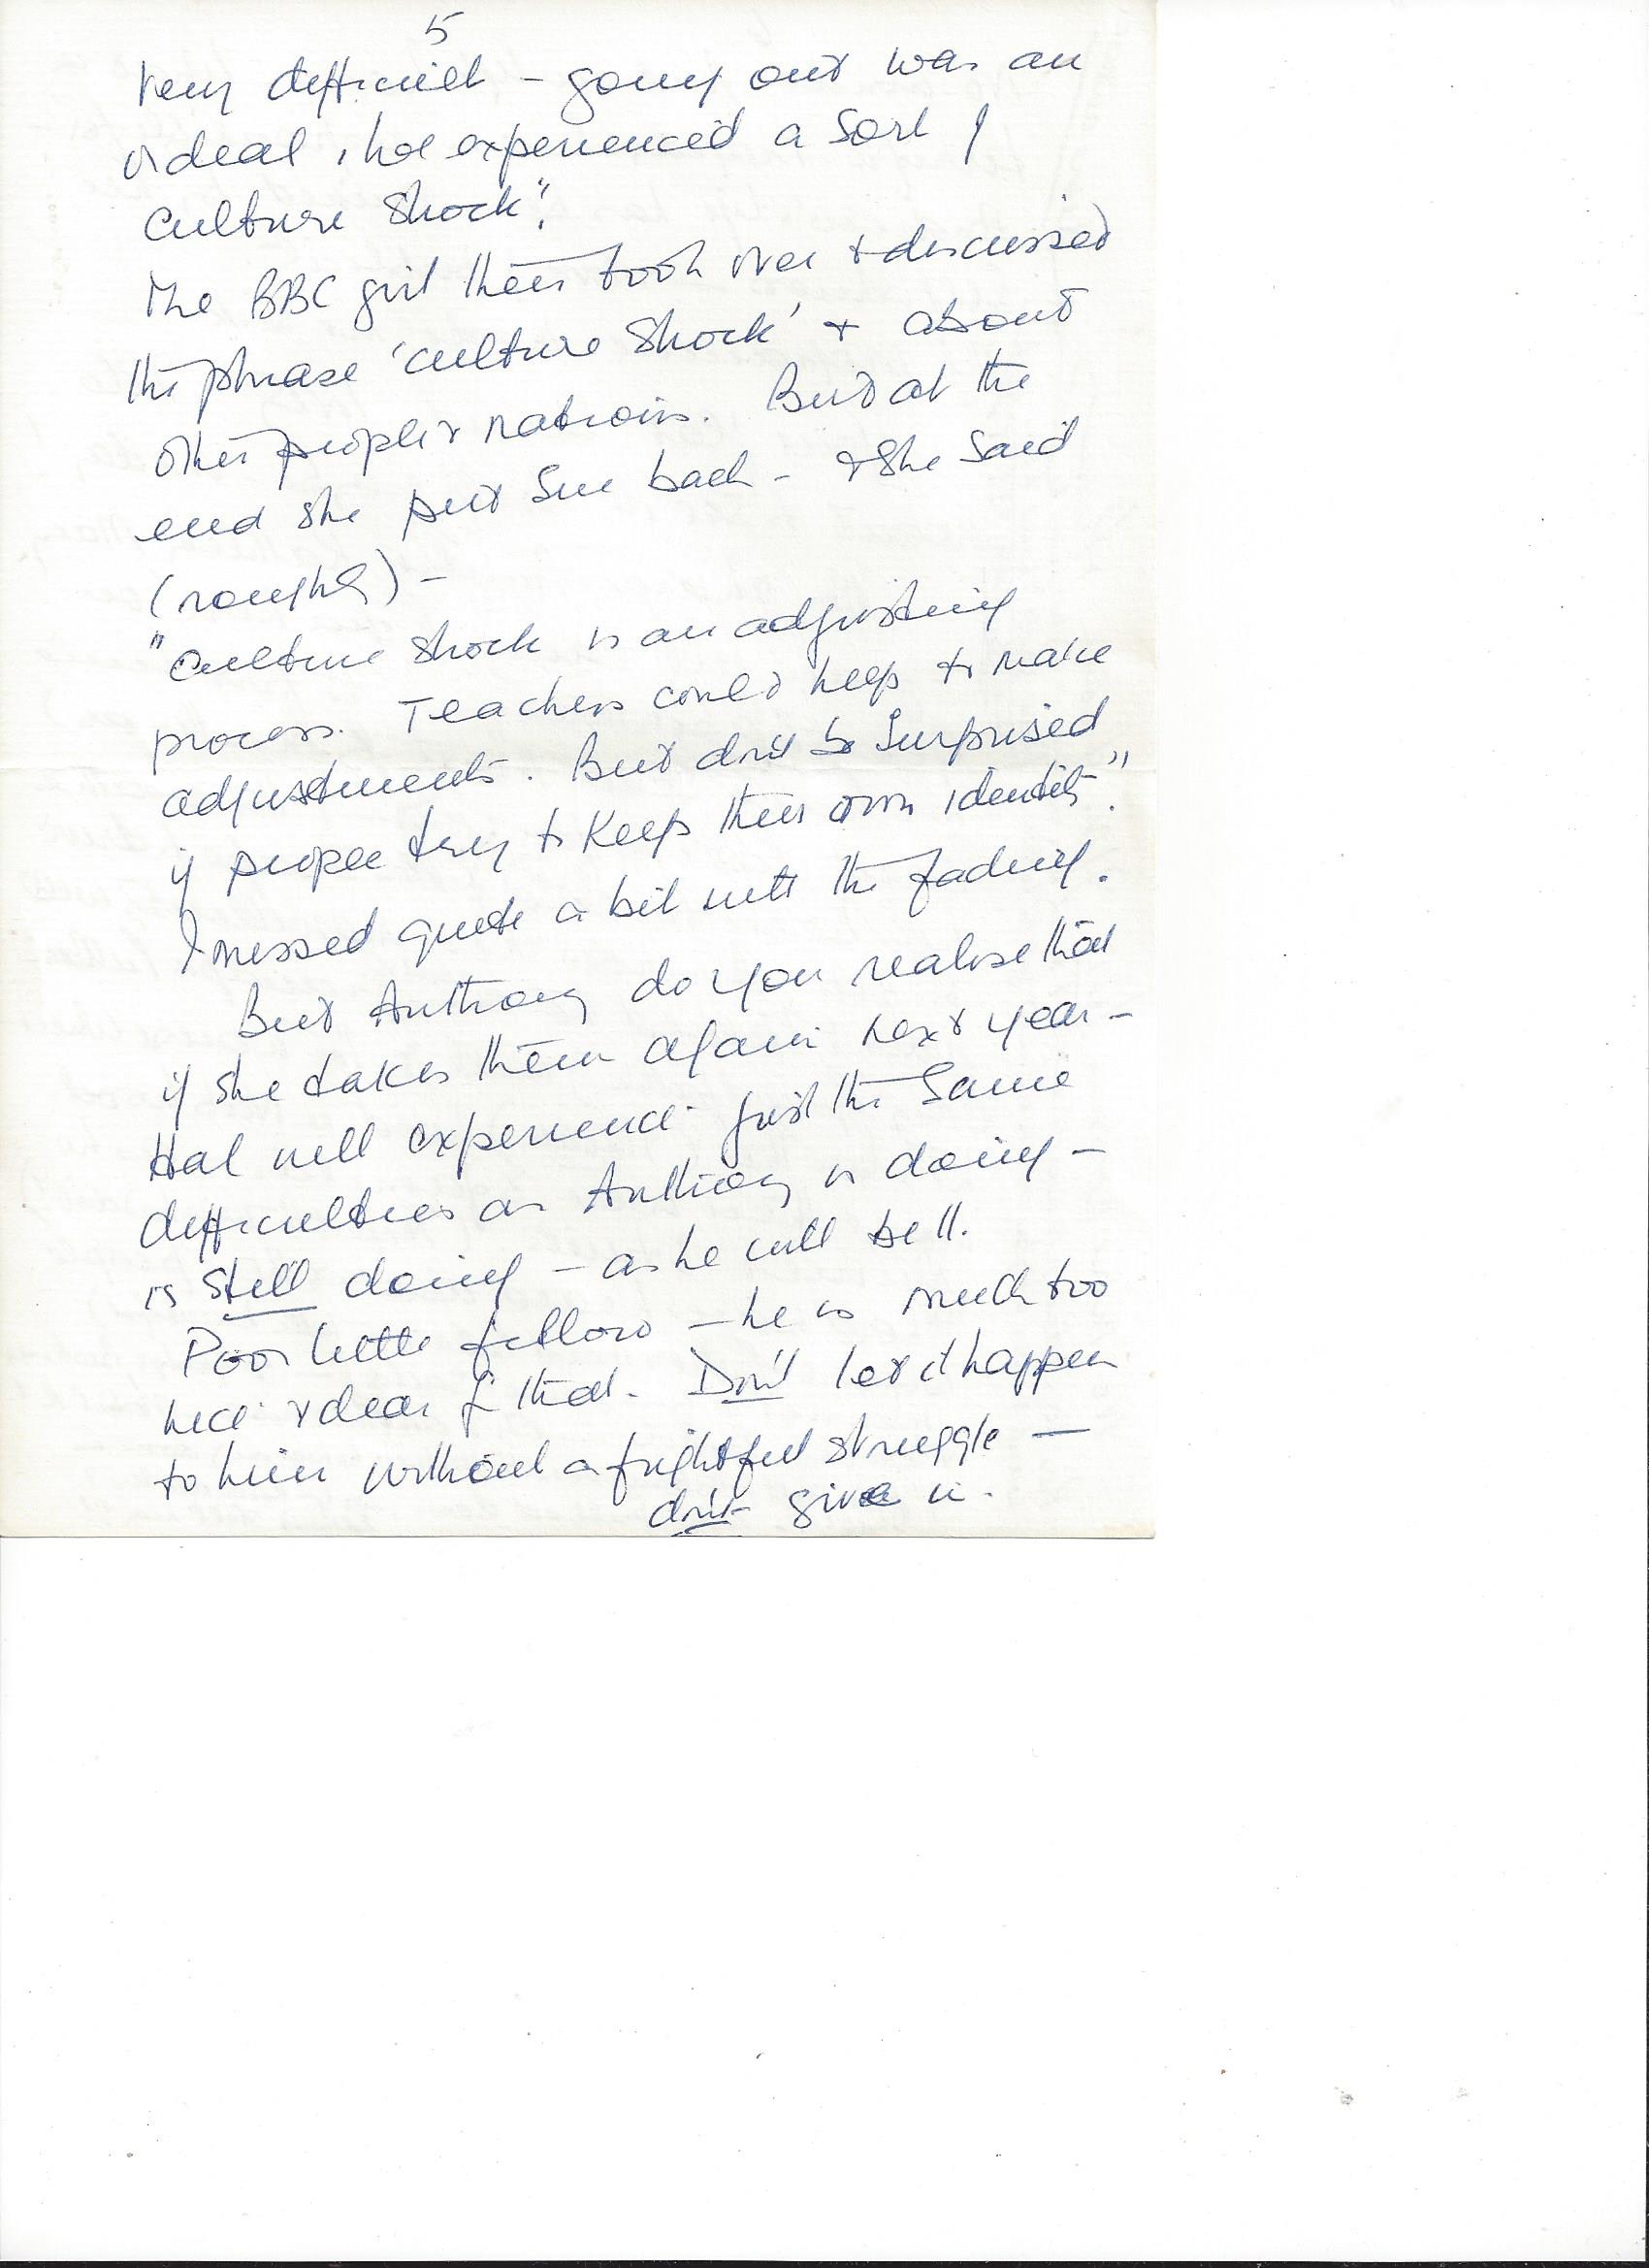 5
very difficult - going out was an
ordeal, he experienced a sort of
culture shock".
The BBC girl then took over & discussed
the phrase 'culture shock' & about
other people & nations. But at the
end she put Sue back - & she said
(roughly) -
"Culture shock is an adjusting
process. Teachers could help to make
adjustments. But don't be surprised
if people try to keep their own identity".
I missed quite a bit with the fading.
But Anthony do you realise that
if she takes them again next year -
Hal will experience just the same
difficulties as Anthony is doing -
is still doing - as he will tell.
Poor little fellow - he is much too
nice & dear for that. Don't let it happen
to him without a frightful struggle -
don't give in.